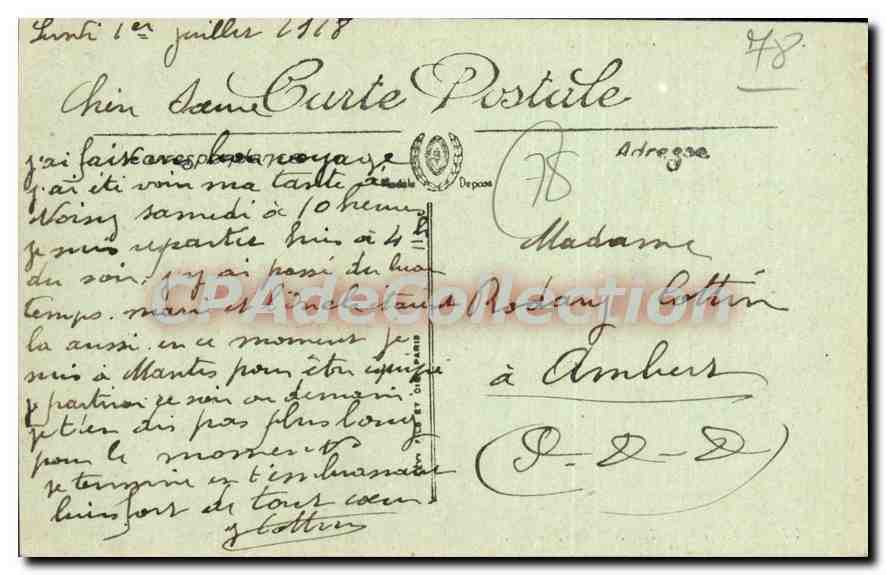 Lundi 1er juillet 1918
78
Carte Postale
Chère Sœur
j'ai fait bon voyage
Correspondance
Adresse
78
j'ai été voir ma tante à
Modèle Déposé
Noisy samedi à 10 heures
je suis repartie hier à 4h
Madame
du soir, j'y ai passé du bon
temps. marie et
Rodary Cottin
CPAdeCollection
la aussi. en ce moment je
suis à Mantes pour être équipé
à Ambert
je partirai ce soir ou demain.
je t'en dis pas plus long
(P-D-D)
pour le moment
je termine en t'embrassant
bien fort de tout cœur
Cottin
FILS ET CIE, PARIS